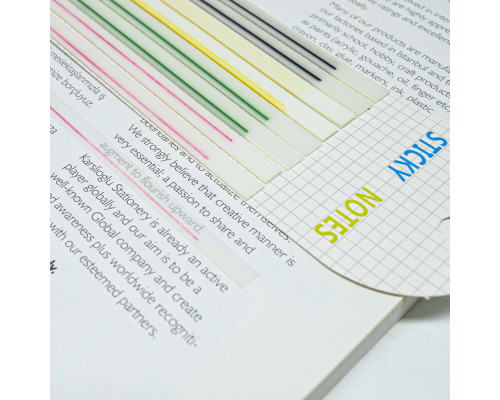 d in inter
are highly appre
ratings and excellen
Many of our products are manufa
Our factories based in Istanbul and t
primarily school, hobby, craft produc
as paints (acrylic, gouache, oil, finger etc.
crayon, clay, glue, markers, ink, plastic
meslektaşlarımızla iş
mize borçluyuz.
boundaries and to actualize themselves.
We strongly believe that creative manner is
very essential; a passion to share and
augment to flourish upward.
Karslioglu Stationery is already an active
player globally and our aim is to be a
well-known Global company and create
d awareness plus worldwide recogniti-
with our esteemed partners.
STICKY
NOTES